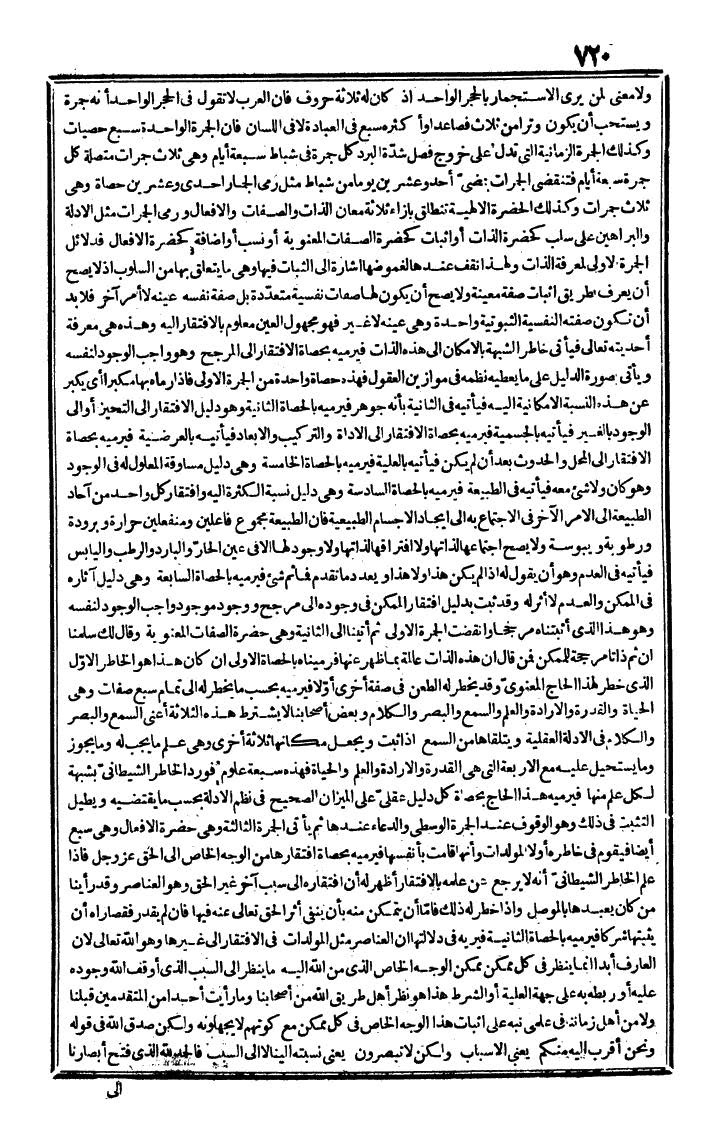 ٧٢٠
ولا معنى لمن يرى الاستجمار بالحجر الواحد اذ كان له ثلاثة حروف فان العرب لا تقول فى الحجر الواحد أنه جمرة
ويستحب أن يكون وترا من ثلاث فصاعدا وأكثره سبع فى العبادة لا فى اللسان فان الجمرة الواحدة سبع حصيات
وكذلك الجمرة الزمانية التى تدل على خروج فصل شدّة البرد كل جمرة فى شباط سبعة أيام وهى ثلاث جمرات متصلة كل
جمرة سبعة أيام فتنقضى الجمرات بمضىّ أحد وعشرين يوما من شباط مثل رمى الجمار احدى وعشرين حصاة وهى
ثلاث جمرات وكذلك الحضرة الالهية تنطلق بازاء ثلاثة معان الذات والصفات والافعال ورمى الجمرات مثل الادلة
والبراهين على سلب كحضرة الذات أو اثبات كحضرة الصفات المعنوية أو نسب أو اضافة كحضرة الافعال فدلائل
الجمرة الاولى لمعرفة الذات ولهذا نقف عندها لغموضها اشارة الى الثبات فيها وهى ما يتعلق بها من السلوب اذ لا يصح
أن يعرف بطريق اثبات صفة معينة ولا يصح أن يكون لها صفات نفسية متعدّدة بل صفة نفسه عينه لا أمر آخر فلا بد
أن تكون صفته النفسية الثبوتية واحدة وهى عينه لا غير فهو مجهول العين معلوم بالافتقار اليه وهذه هى معرفة
أحديته تعالى فيأتى خاطر الشبهة بالامكان الى هذه الذات فيرميه بحصاة الافتقار الى المرجح وهو واجب الوجود لنفسه
ويأتى بصورة الدليل على ما يعطيه نظمه فى موازين العقول فهذه حصاة واحدة من الجمرة الاولى فاذا رماه بها مكبرا أى يكبر
عن هذه النسبة الامكانية اليه فيأتيه فى الثانية بأنه جوهر فيرميه بالحصاة الثانية وهو دليل الافتقار الى التحيز أو الى
الوجود بالغير فيأتيه بالجسمية فيرميه بحصاة الافتقار الى الاداة والتركيب والابعاد فيأتيه بالعرضية فيرميه بحصاة
الافتقار الى المحل والحدوث بعد أن لم يكن فيأتيه بالعلية فيرميه بالحصاة الخامسة وهى دليل مساوقة المعلول له فى الوجود
وهو كان ولا شئ معه فيأتيه فى الطبيعة فيرميه بالحصاة السادسة وهى دليل نسبة الكثرة اليه وافتقار كل واحد من آحاد
الطبيعة الى الامر الآخر فى الاجتماع به الى ايجاد الاجسام الطبيعية فان الطبيعة مجموع فاعلين ومنفعلين حرارة وبرودة
ورطوبة ويبوسة ولا يصح اجتماعها لذاتها ولا افتراقها لذاتها ولا وجود لها الا فى عين الحارّ والبارد والرطب واليابس
فيأتيه فى العدم وهو أن يقول له اذا لم يكن هذا ولا هذا ويعدد ما تقدم فما ثم شئ فيرميه بالحصاة السابعة وهى دليل آثاره
فى الممكن والعدم لا أثر له وقد ثبت بدليل افتقار الممكن فى وجوده الى مرجح ووجود موجود واجب الوجود لنفسه
وهو هذا الذى أثبتناه مرجحا وانقضت الجمرة الاولى ثم أتينا الى الثانية وهى حضرة الصفات المعنوية وقال لك سلمنا
ان ثم ذاتا مرجحة للممكن فمن قال ان هذه الذات عالمة بما ظهر عنها فرميناه بالحصاة الاولى ان كان هذا هو الخاطر الاوّل
الذى خطر لهذا الحاج المعنوىّ وقد يخطر له الطعن فى صفة أخرى أوّلا فيرميه بحسب ما يخطر له الى تمام سبع صفات وهى
الحياة والقدرة والارادة والعلم والسمع والبصر والكلام وبعض أصحابنا لا يشترط هذه الثلاثة أعنى السمع والبصر
والكلام فى الادلة العقلية ويتلقاها من السمع اذا ثبت ويجعل مكانها ثلاثة أخرى وهى علم ما يجب له وما يجوز
وما يستحيل عليه مع الاربعة التى هى القدرة والارادة والعلم والحياة فهذه سبعة علوم فورد الخاطر الشيطانىّ بشبهة
لكل علم منها فيرميه هذا الحاج بحصاة كل دليل عقلىّ على الميزان الصحيح فى نظم الادلة بحسب ما يقتضيه ويطيل
التثبت فى ذلك وهو الوقوف عند الجمرة الوسطى والدعاء عندها ثم يأتى الجمرة الثالثة وهى حضرة الافعال وهى سبع
أيضا فيقوم فى خاطره أولا المولدات وأنها قامت بأنفسها فيرميه بحصاة افتقارها من الوجه الخاص الى الحق عز وجل فاذا
علم الخاطر الشيطانىّ أنه لا يرجع عن علمه بالافتقار أظهر له أن افتقاره الى سبب آخر غير الحق وهو العناصر وقد رأينا
من كان يعبدها بالموصل واذا خطر له ذلك فامّا أن يتمكن منه بأن ينفى أثر الحق تعالى عنه فيها فان لم يقدر فقصاراه أن
يثبتها شركا فيرميه بالحصاة الثانية فيريه فى دلالتها ان العناصر مثل المولدات فى الافتقار الى غيرها وهو الله تعالى لان
العارف أبدا انما ينظر فى كل ممكن ممكن الوجه الخاص الذى من الله اليه ما ينظر الى السبب الذى أوقف الله وجوده
عليه أو ربطه به على جهة العلية أو الشرط هذا هو نظر أهل طريق الله من أصحابنا وما رأيت أحدا من المتقدمين قبلنا
ولا من أهل زمانه فى علمى نبه على اثبات هذا الوجه الخاص فى كل ممكن مع كونهم لا يجهلونه ولكن صدق الله فى قوله
ونحن أقرب اليه منكم يعنى الاسباب ولكن لا تبصرون يعنى نسبته الينا لا الى السبب فالحمد لله الذى فتح أبصارنا
الى